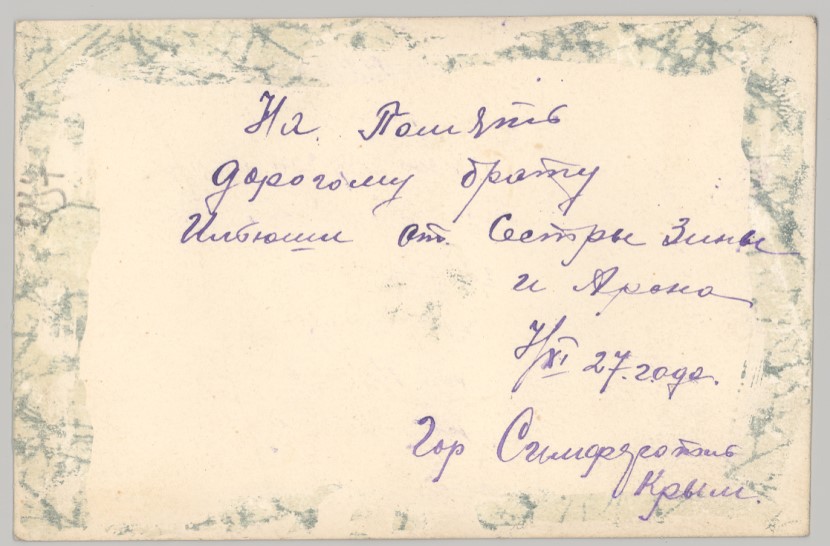 На Память
дорогому брату
Ильюши от Сестры Зины
и Арона
7/XI 27. года.
Гор Симферополь
Крым.